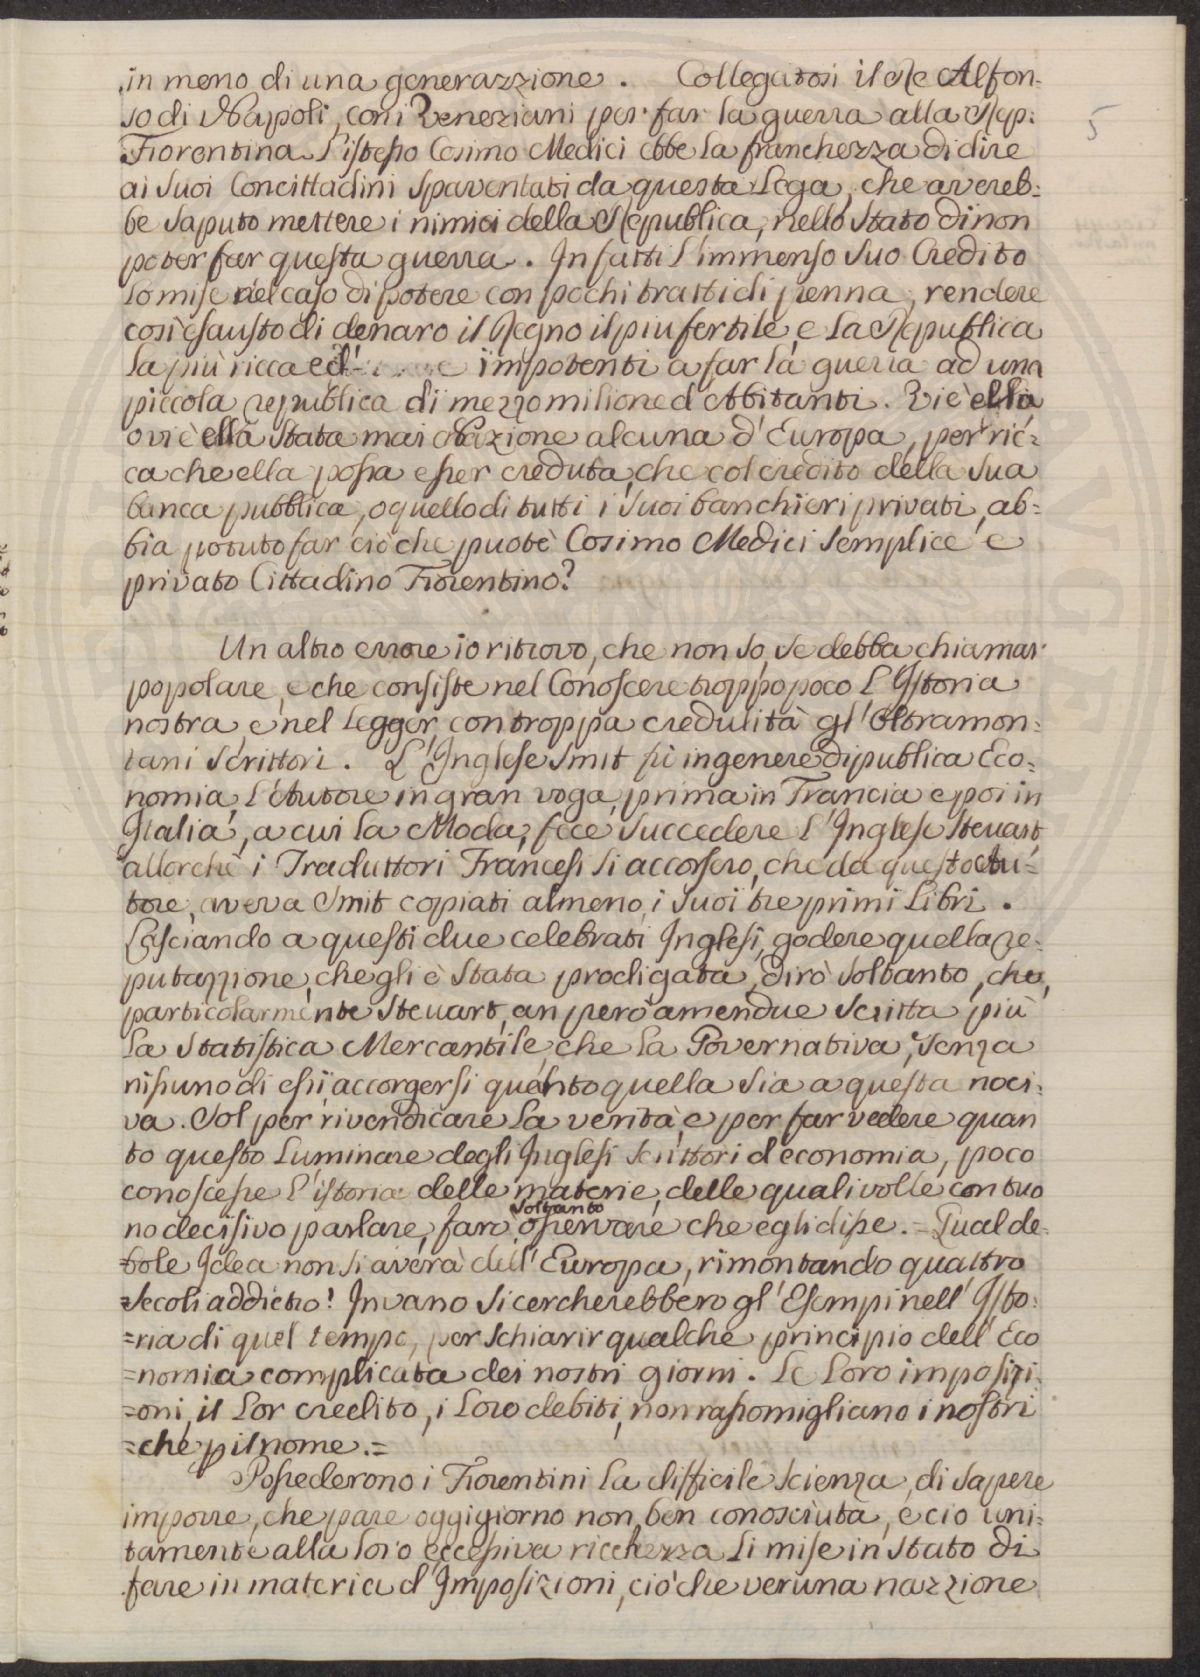 in meno di una generazzione. Collegatosi il Re Alfon-
so di Napoli, con i Veneziani per far la guerra alla Rep:
5
Fiorentina L'istesso Cosimo Medici ebbe la franchezza di dire
ai Suoi Concittadini Spaventati da questa Lega, che avereb-
be Saputo mettere i nimici della Republica, nello Stato di non
poter far questa guerra. In fatti L'immenso Suo Credito
Lo mise nel caso di potere con pochi tratti di penna, rendere
così esausto di denaro il Regno il piu fertile, e La Republica
La più ricca ed impotenti a far la guerra ad una
piccola republica di mezzo milione d'Abitanti. Vi è ella
o vi è ella Stata mai Nazione alcuna d'Europa, per ric-
ca che ella possa esser creduta, che col credito della Sua
banca pubblica, o quello di tutti i Suoi banchieri privati, ab-
bia potuto far ciò che puotè Cosimo Medici Semplice e
privato Cittadino Fiorentino?
Un altro errore io ritrovo, che non So, Se debba chiamar
popolare, e che consiste nel Conoscere troppo poco L'Istoria
nostra e nel Legger con troppa credulità gl'Oltramon-
tani Scrittori. L'Inglese Smit fù in genere di publica Eco-
nomia L'Autore in gran voga, prima in Francia e poi in
Italia, a cui la Moda, fece Succedere L'Inglese Steuart
allorchè i Traduttori Francesi Si accorsero, che da questo Au-
tore, aveva Smit copiati almeno i Suoi tre primi Libri.
Lasciando a questi due celebrati Inglesi, godere quella re-
putazzione, che gli è Stata prodigata, dirò Soltanto, che,
particolarmente Steuart, an però amendue Scritta più
La Statistica Mercantile, che La Governativa, Senza
nissuno di essi accorgersi quanto quella Sia a questa noci-
va. Sol per rivendicare La verità, e per far vedere quan
to questo Luminare degli Inglesi Scrittori d'economia, poco
conoscesse L'istoria delle materie, delle quali volle con tuo
no decisivo parlare, farò Soltanto osservare che egli disse. = Qual de-
bole Idea non Si averà dell'Europa, rimontando quattro
=Secoli addietro! Invano Si cercherebbero gl'Esempi nell'Isto-
=ria di quel tempo, per Schiarir qualche principio dell'Eco
=nomia complicata dei nostri giorni. Le Loro imposizi-
=oni, il Lor credito, i Loro debiti, non rassomigliano i nostri
=che pil nome.=
Possederono i Fiorentini La difficile Scienza, di Sapere
imporre, che pare oggigiorno non ben conosciuta, e ciò uni-
tamente alla Loro eccessiva ricchezza Li mise in Stato di
fare in materia d'Imposizioni, ciò che veruna nazzione